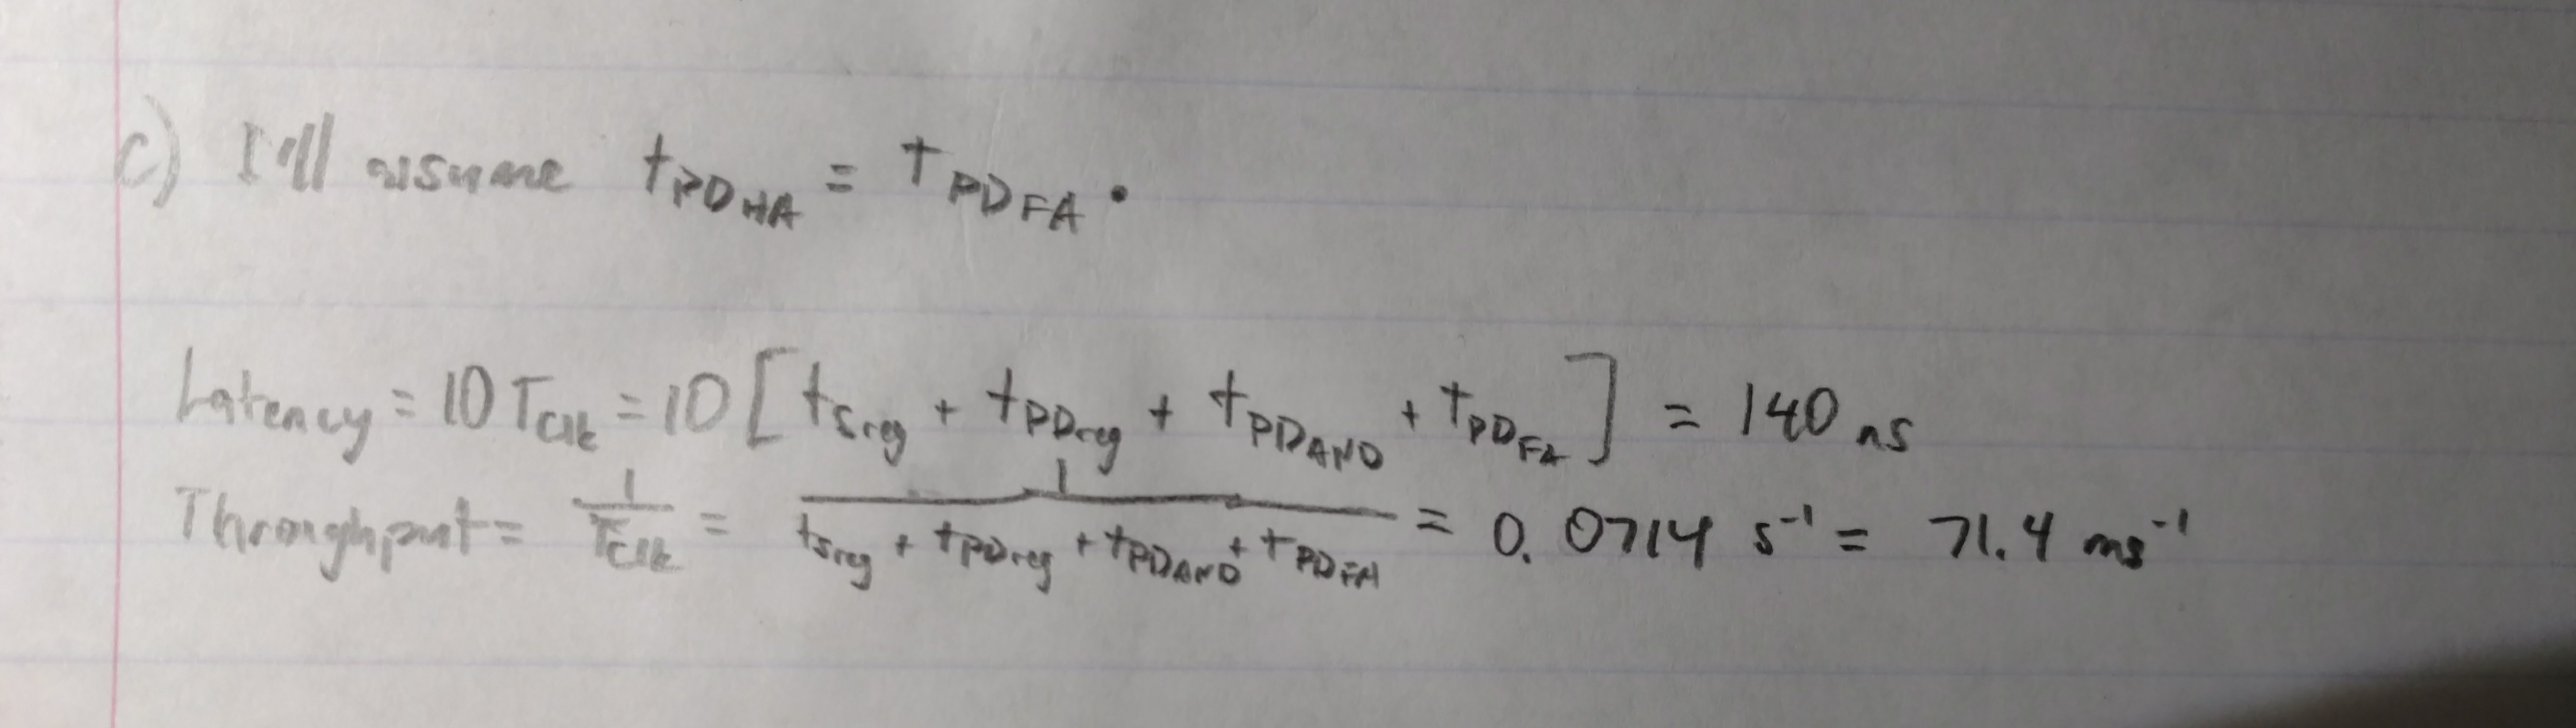 c) I'll assume t_PD_HA = t_PD_FA.
Latency = 10 T_Clk = 10 [t_s_reg + t_PD_reg + t_PD_AND + t_PD_FA] = 140 ns
Throughput = 1/T_Clk = 1/(t_s_reg + t_PD_reg + t_PD_AND + t_PD_FA) = 0.0714 s⁻¹ = 71.4 ms⁻¹